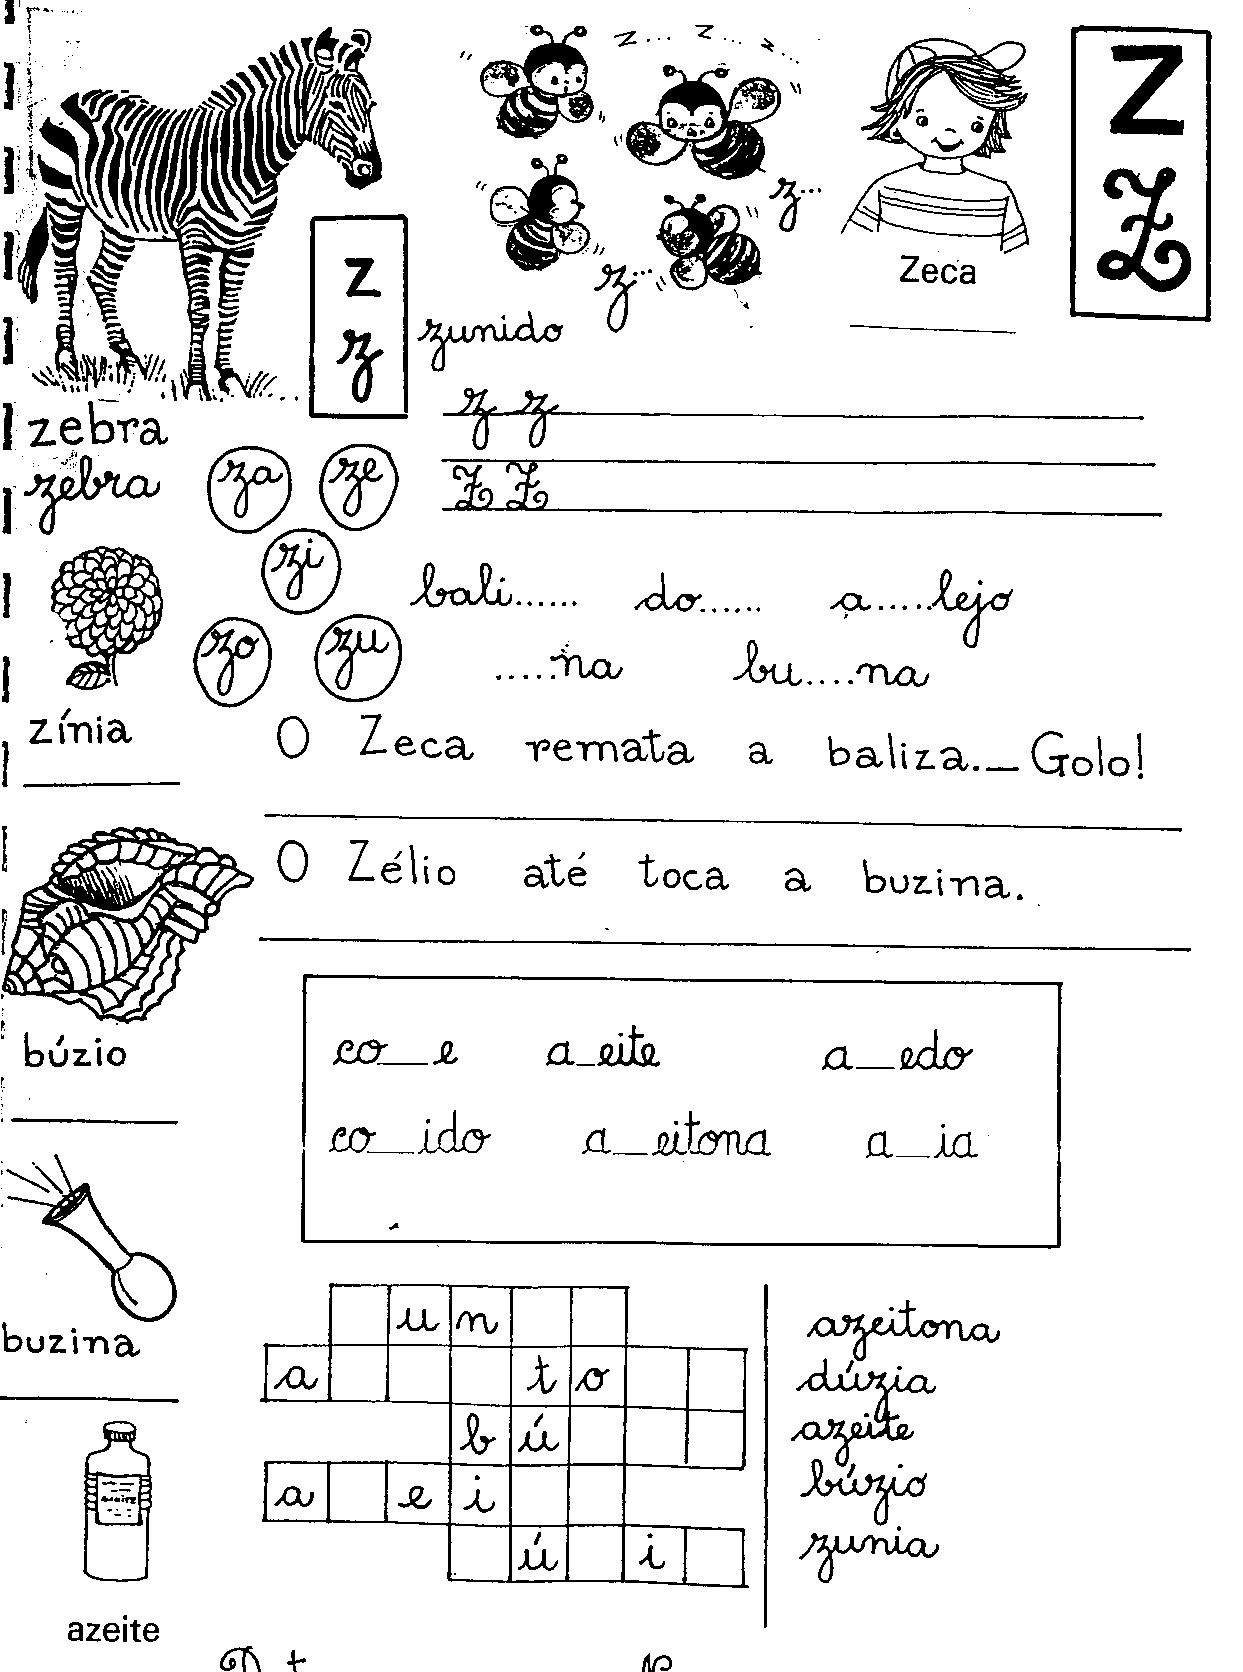 z... z... z...
Z
Z
z...
Zeca
z...
z
z
zunido
zebra
zebra
z z
Z Z
za ze
zi
zo zu
bali...... do...... a.....lejo
.....na bu....na
zínia
O Zeca remata a baliza._Golo!
O Zélio até toca a buzina.
búzio
co__e a_eite a__edo
co__ido a__eitona a__ia
buzina
u n
a t o
b ú
a e i
ú i
azeitona
dúzia
azeite
búzio
zunia
azeite
azeite